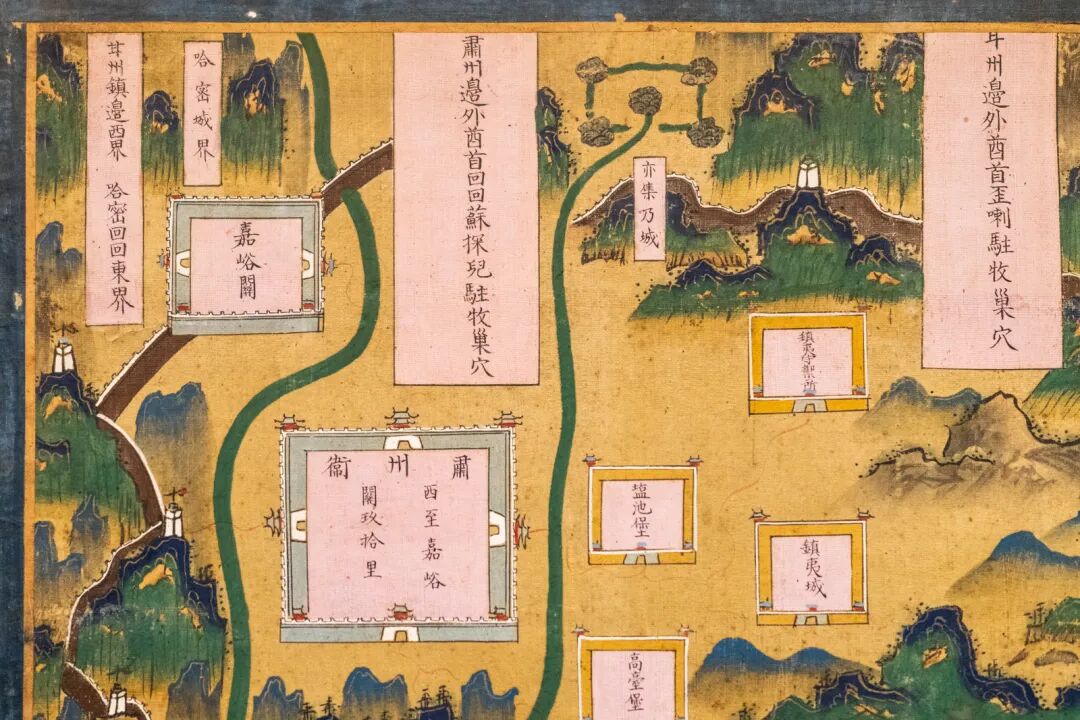 甘州鎮邊西界 哈密回回東界
哈密城界
嘉峪關
肅州邊外酋首回回蘇探兒駐牧巢穴
亦集乃城
甘州邊外酋首歪喇駐牧巢穴
肅州衞
西至嘉峪
關玖拾里
鎮夷守禦所
塩池堡
鎮夷城
高臺堡